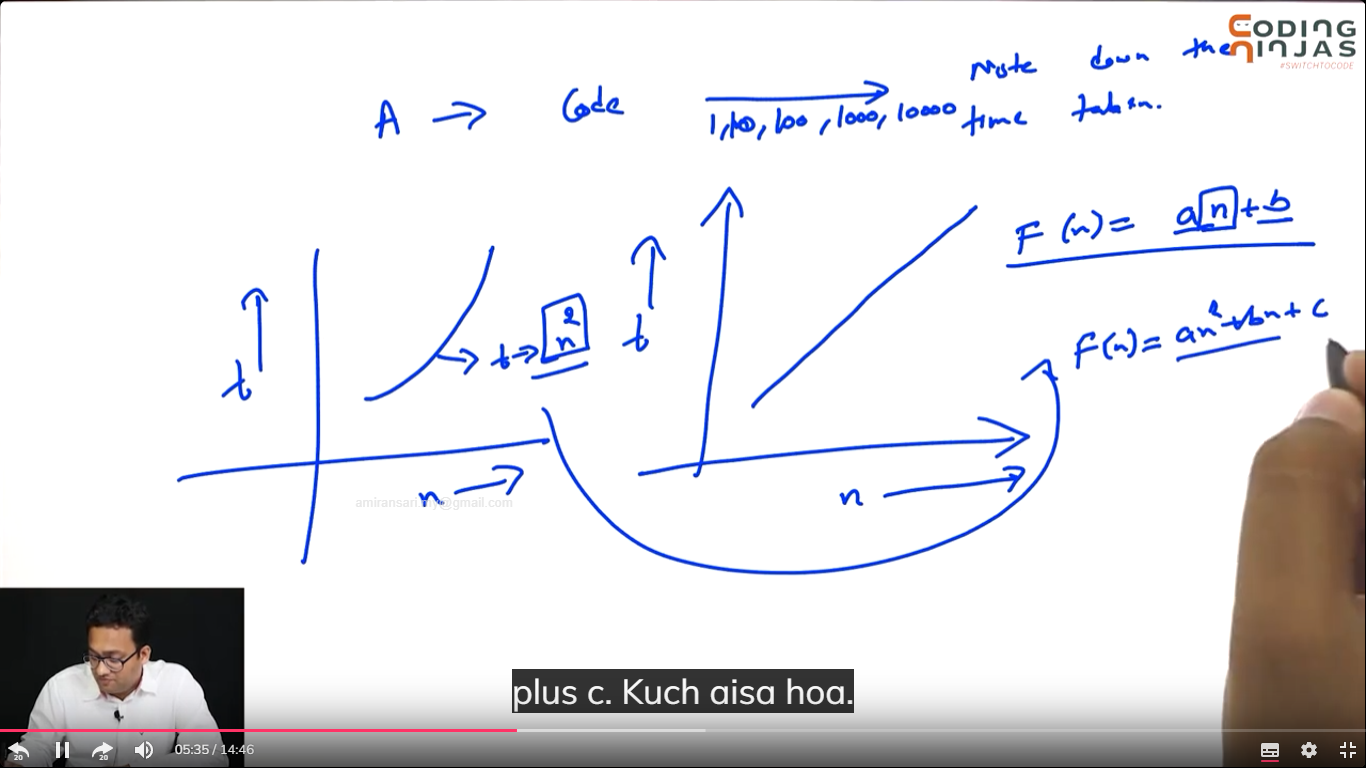 CODING
NINJAS
#SWITCHTOCODE
A → Code
1, 10, 100, 1000, 10000
Note down the
time taken.
F(n) = an + b
t
t → n²
t
F(n) = an² + bn + c
n →
n →
plus c. Kuch aisa hoa.
20
20
05:35 / 14:46